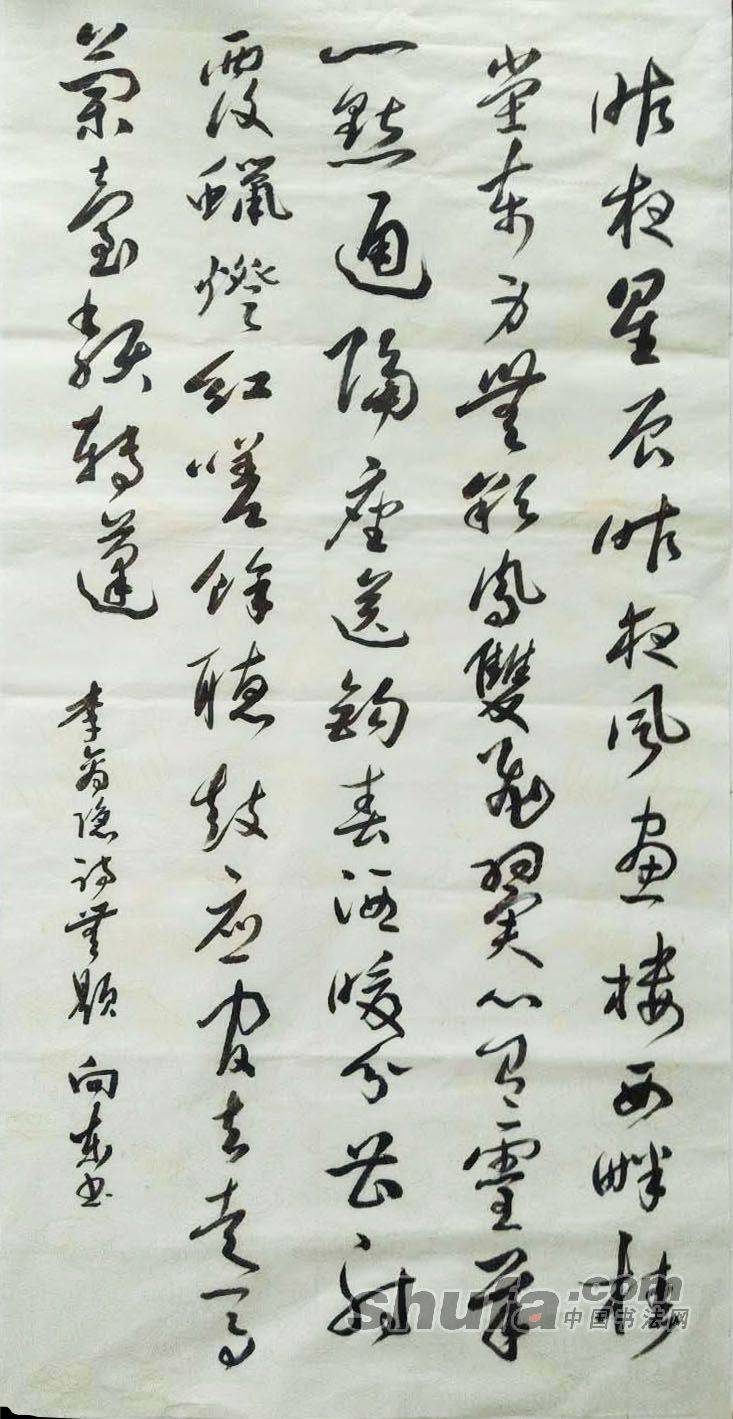 昨夜星辰昨夜風畫樓西畔桂
堂東身無彩鳳雙飛翼心有靈犀
一點通隔座送鉤春酒暖分曹射
覆蠟燈紅嗟餘聽鼓應官去走馬
蘭臺類轉蓬
李商隱詩無題 向東書
shufa.com
中国书法网